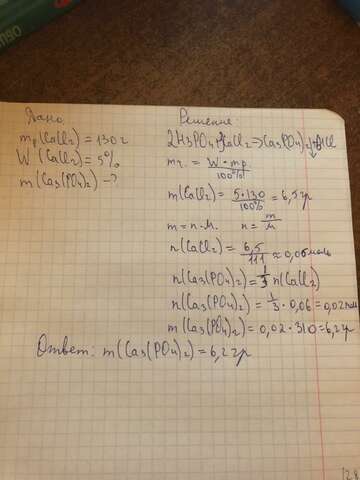 Дано:
Решение:
mр(CaCl2) = 130 г
W (CaCl2) = 5%
m(Ca3(PO4)2) - ?
2H3PO4 + 3CaCl2 => Ca3(PO4)2↓ + 6HCl
mч. = W · mр / 100%
m(CaCl2) = 5 · 130 / 100% = 6,5 гр
m = n · M. n = m / M
n(CaCl2) = 6,5 / 111 ≈ 0,06 моль
n(Ca3(PO4)2) = 1/3 n(CaCl2)
n(Ca3(PO4)2) = 1/3 · 0,06 = 0,02 моль
m(Ca3(PO4)2) = 0,02 · 310 = 6,2 гр
Ответ: m(Ca3(PO4)2) = 6,2 гр